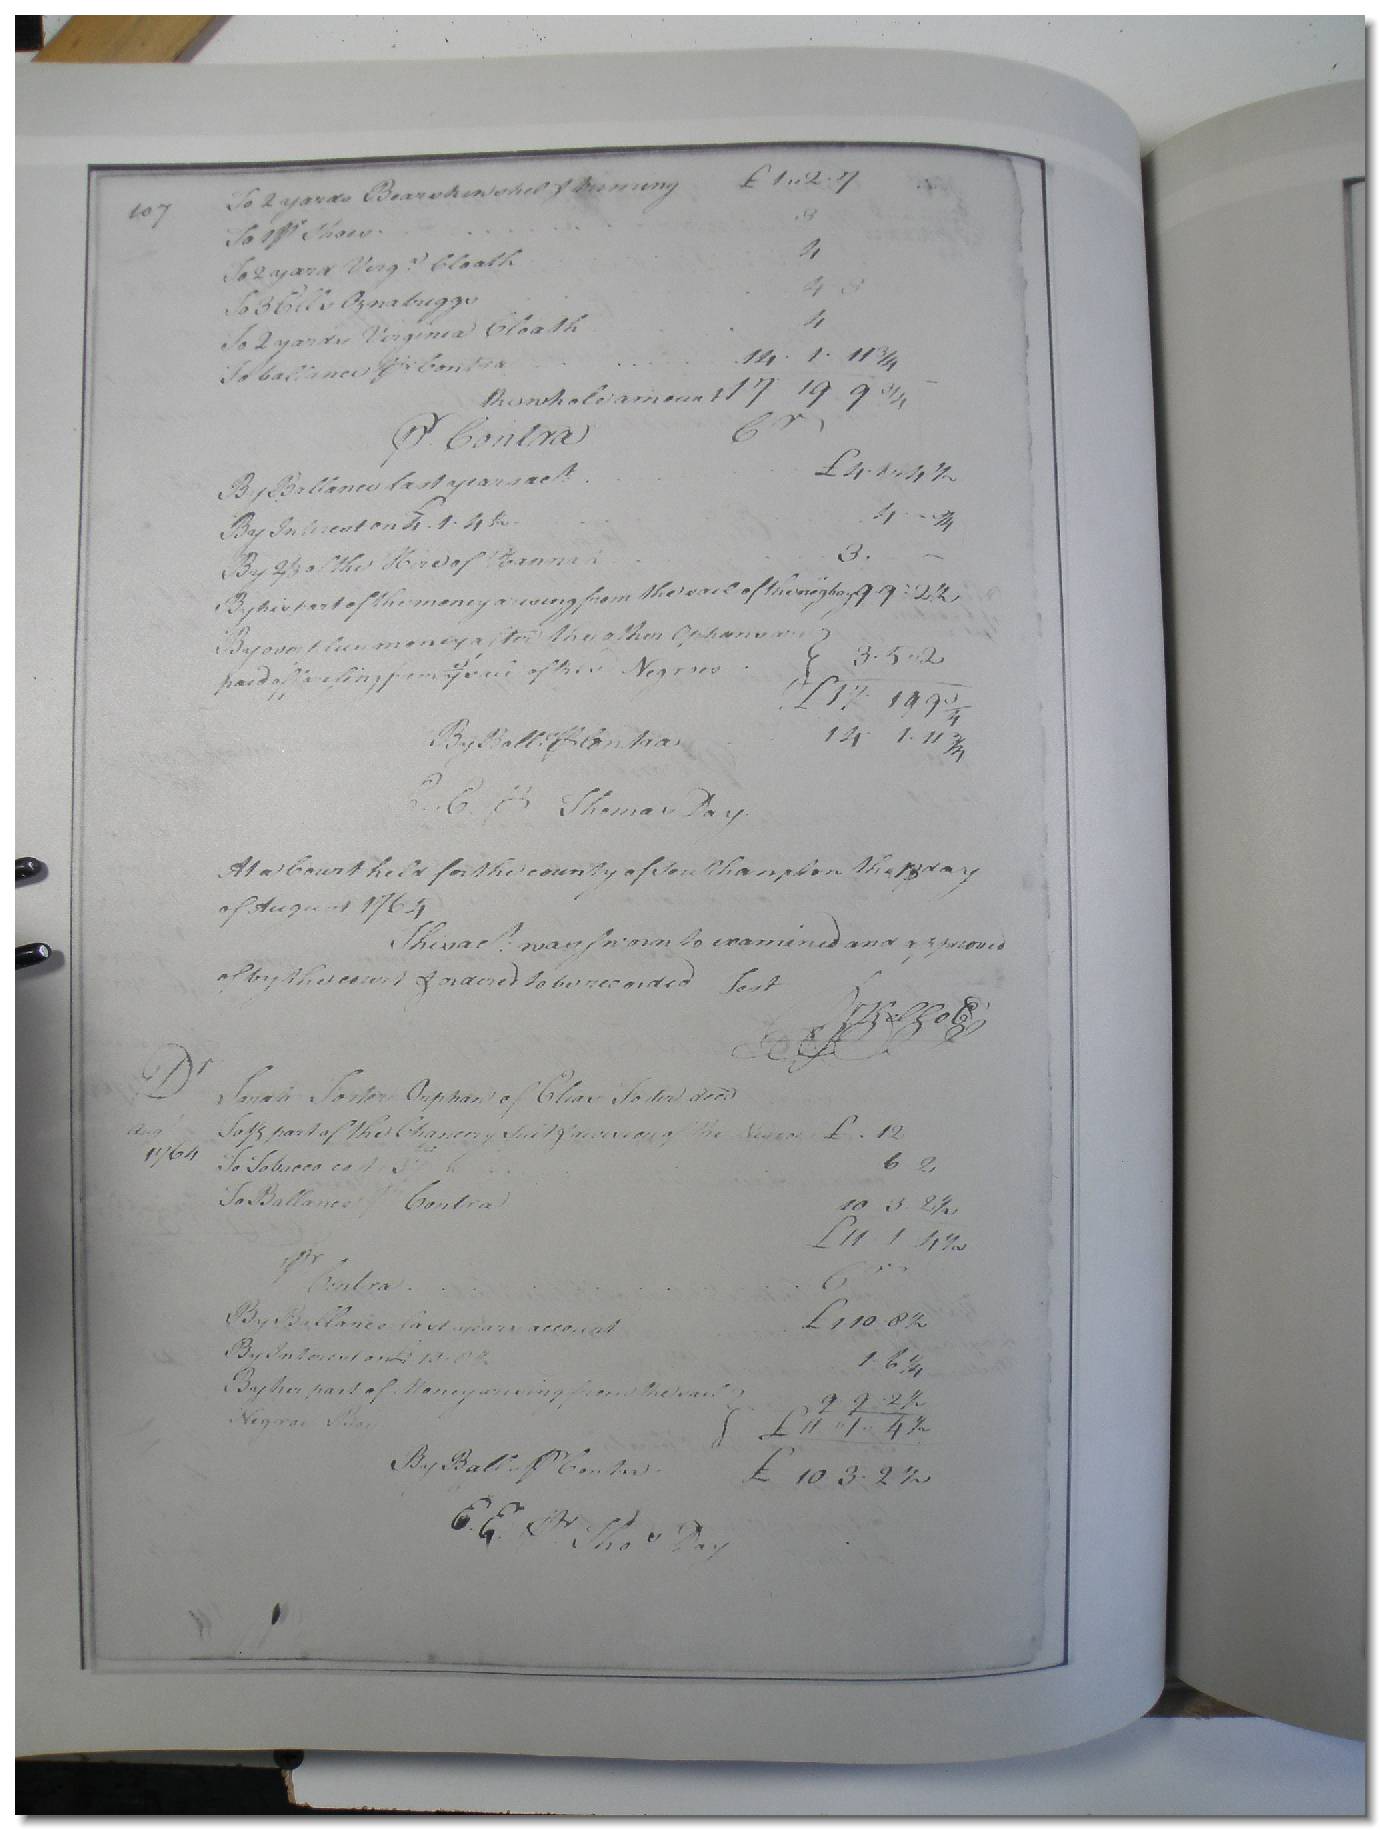 107 To 2 yards Bearskin shel & triming £ 1 .. 2 . 7
To 1 pr Shoes 3
To 2 yard Virga Cloath 4
To 3 Ells Oznabriggs 4 3
To 2 yards Virginia Cloath 4
To ballance pr Contra 14 . 1 . 11 3/4
the whole amount 17 19 9 3/4
Pr Contra Cr
By Ballance last years act £4 . 1 .. 4 1/2
By Interest on £4 . 1 . 4 1/2 4 .. 3/4
By 2/3 of the Hire of 3 .
By his part of the money arising from the sail of the negro boy 9 9 .. 2 1/2
By money after the other Orphans are
paid off arising from ye sail of the Negroes 3 . 5 .. 2
£17 . 19 9 3/4
By Ball. pr Contra 14 1 . 11 3/4
E. E. pr Thomas Day
At a Court held for the county of Southampton the 13 day
of August 1764
This act. was sworn to examined and approved
of by the court & ordered to be recorded Test
Dr Sarah Orphan of Elias decd
Augt To 1/3 part of the Chancery Suit & of the Negroes £ . 12
1764 To Tobacco 6 2
To Ballance pr Contra 10 3 . 2 1/2
£11 1 4 1/2
Pr
Contra Cr
By Ballance last years account £1 10 . 8 1/2
By Interest on 1 . 6 1/4
By her part of Money arising from the sail 9 9 . 2 1/2
Negroe Boy £ 11 .. 1 .. 4 1/2
By Ball. pr Contra £ 10 3 . 2 1/2
E. E. Pr Thos Day